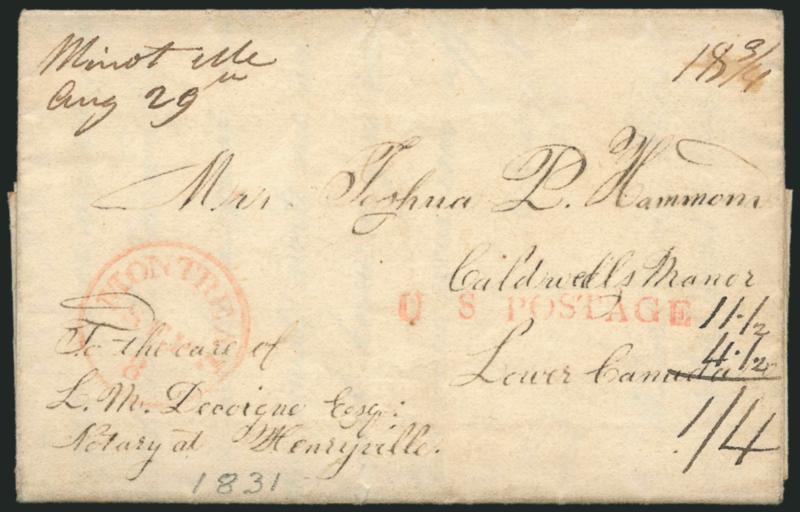 Minot Me
Aug 29th
18 3/4
Mrs. Joshua P. Hammon
Caldwells Manor
U S POSTAGE
11 1/2
4 1/2
Lower Canada
1/4
MONTREAL
To the care of
L. M. Decoigne Esqr:
Notary at Henryville.
1831